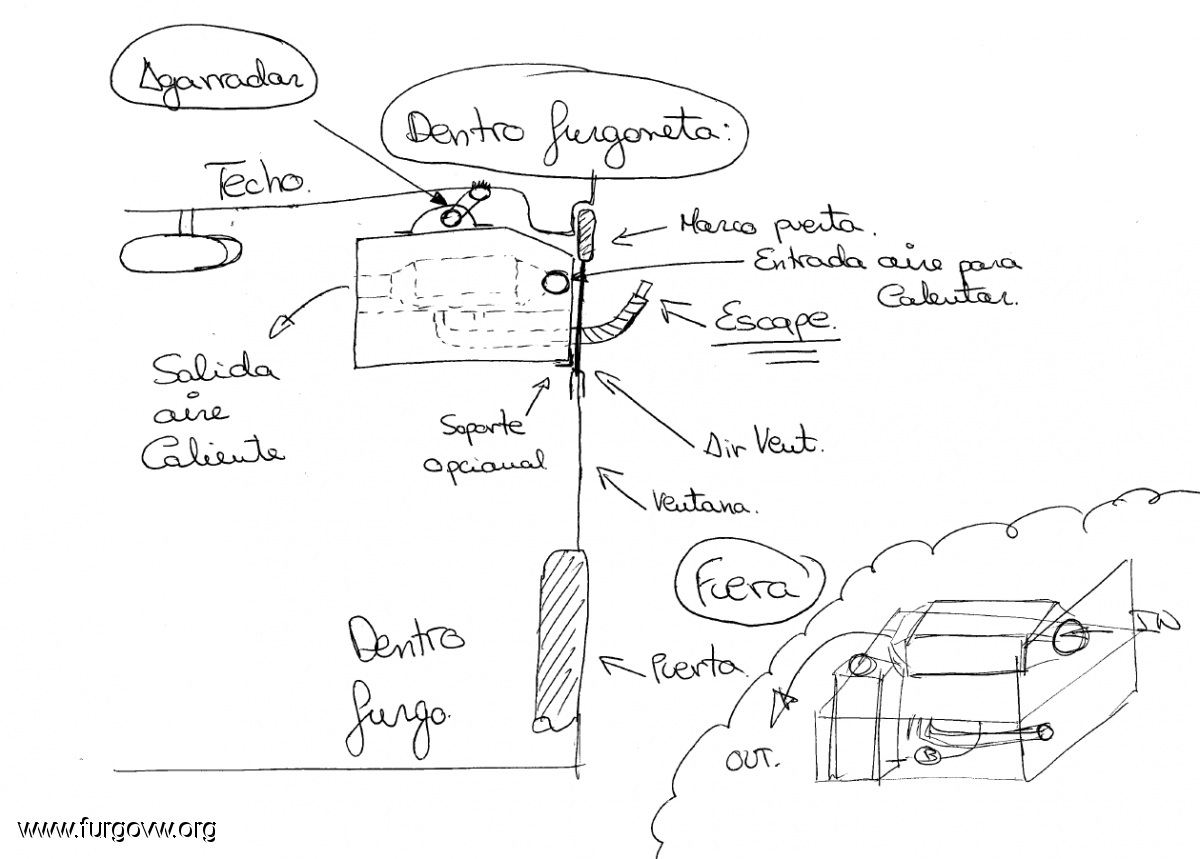 Agarrador
Dentro furgoneta:
Techo.
Marco puerta.
Entrada aire para
Calentar.
Escape.
Salida
aire
Caliente
Soporte
opcional
Air Vent.
Ventana.
Fuera
IN
Dentro
furgo.
Puerta.
OUT.
B
www.furgovw.org